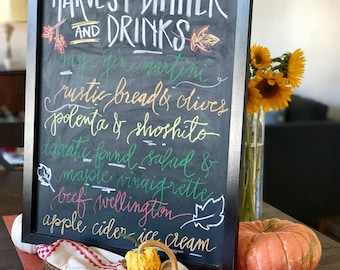 HARVEST DINNER
AND DRINKS
gin martini
rustic bread & olives
polenta & shoshito
fennel salad &
maple vinaigrette
beef wellington
apple cider ice cream